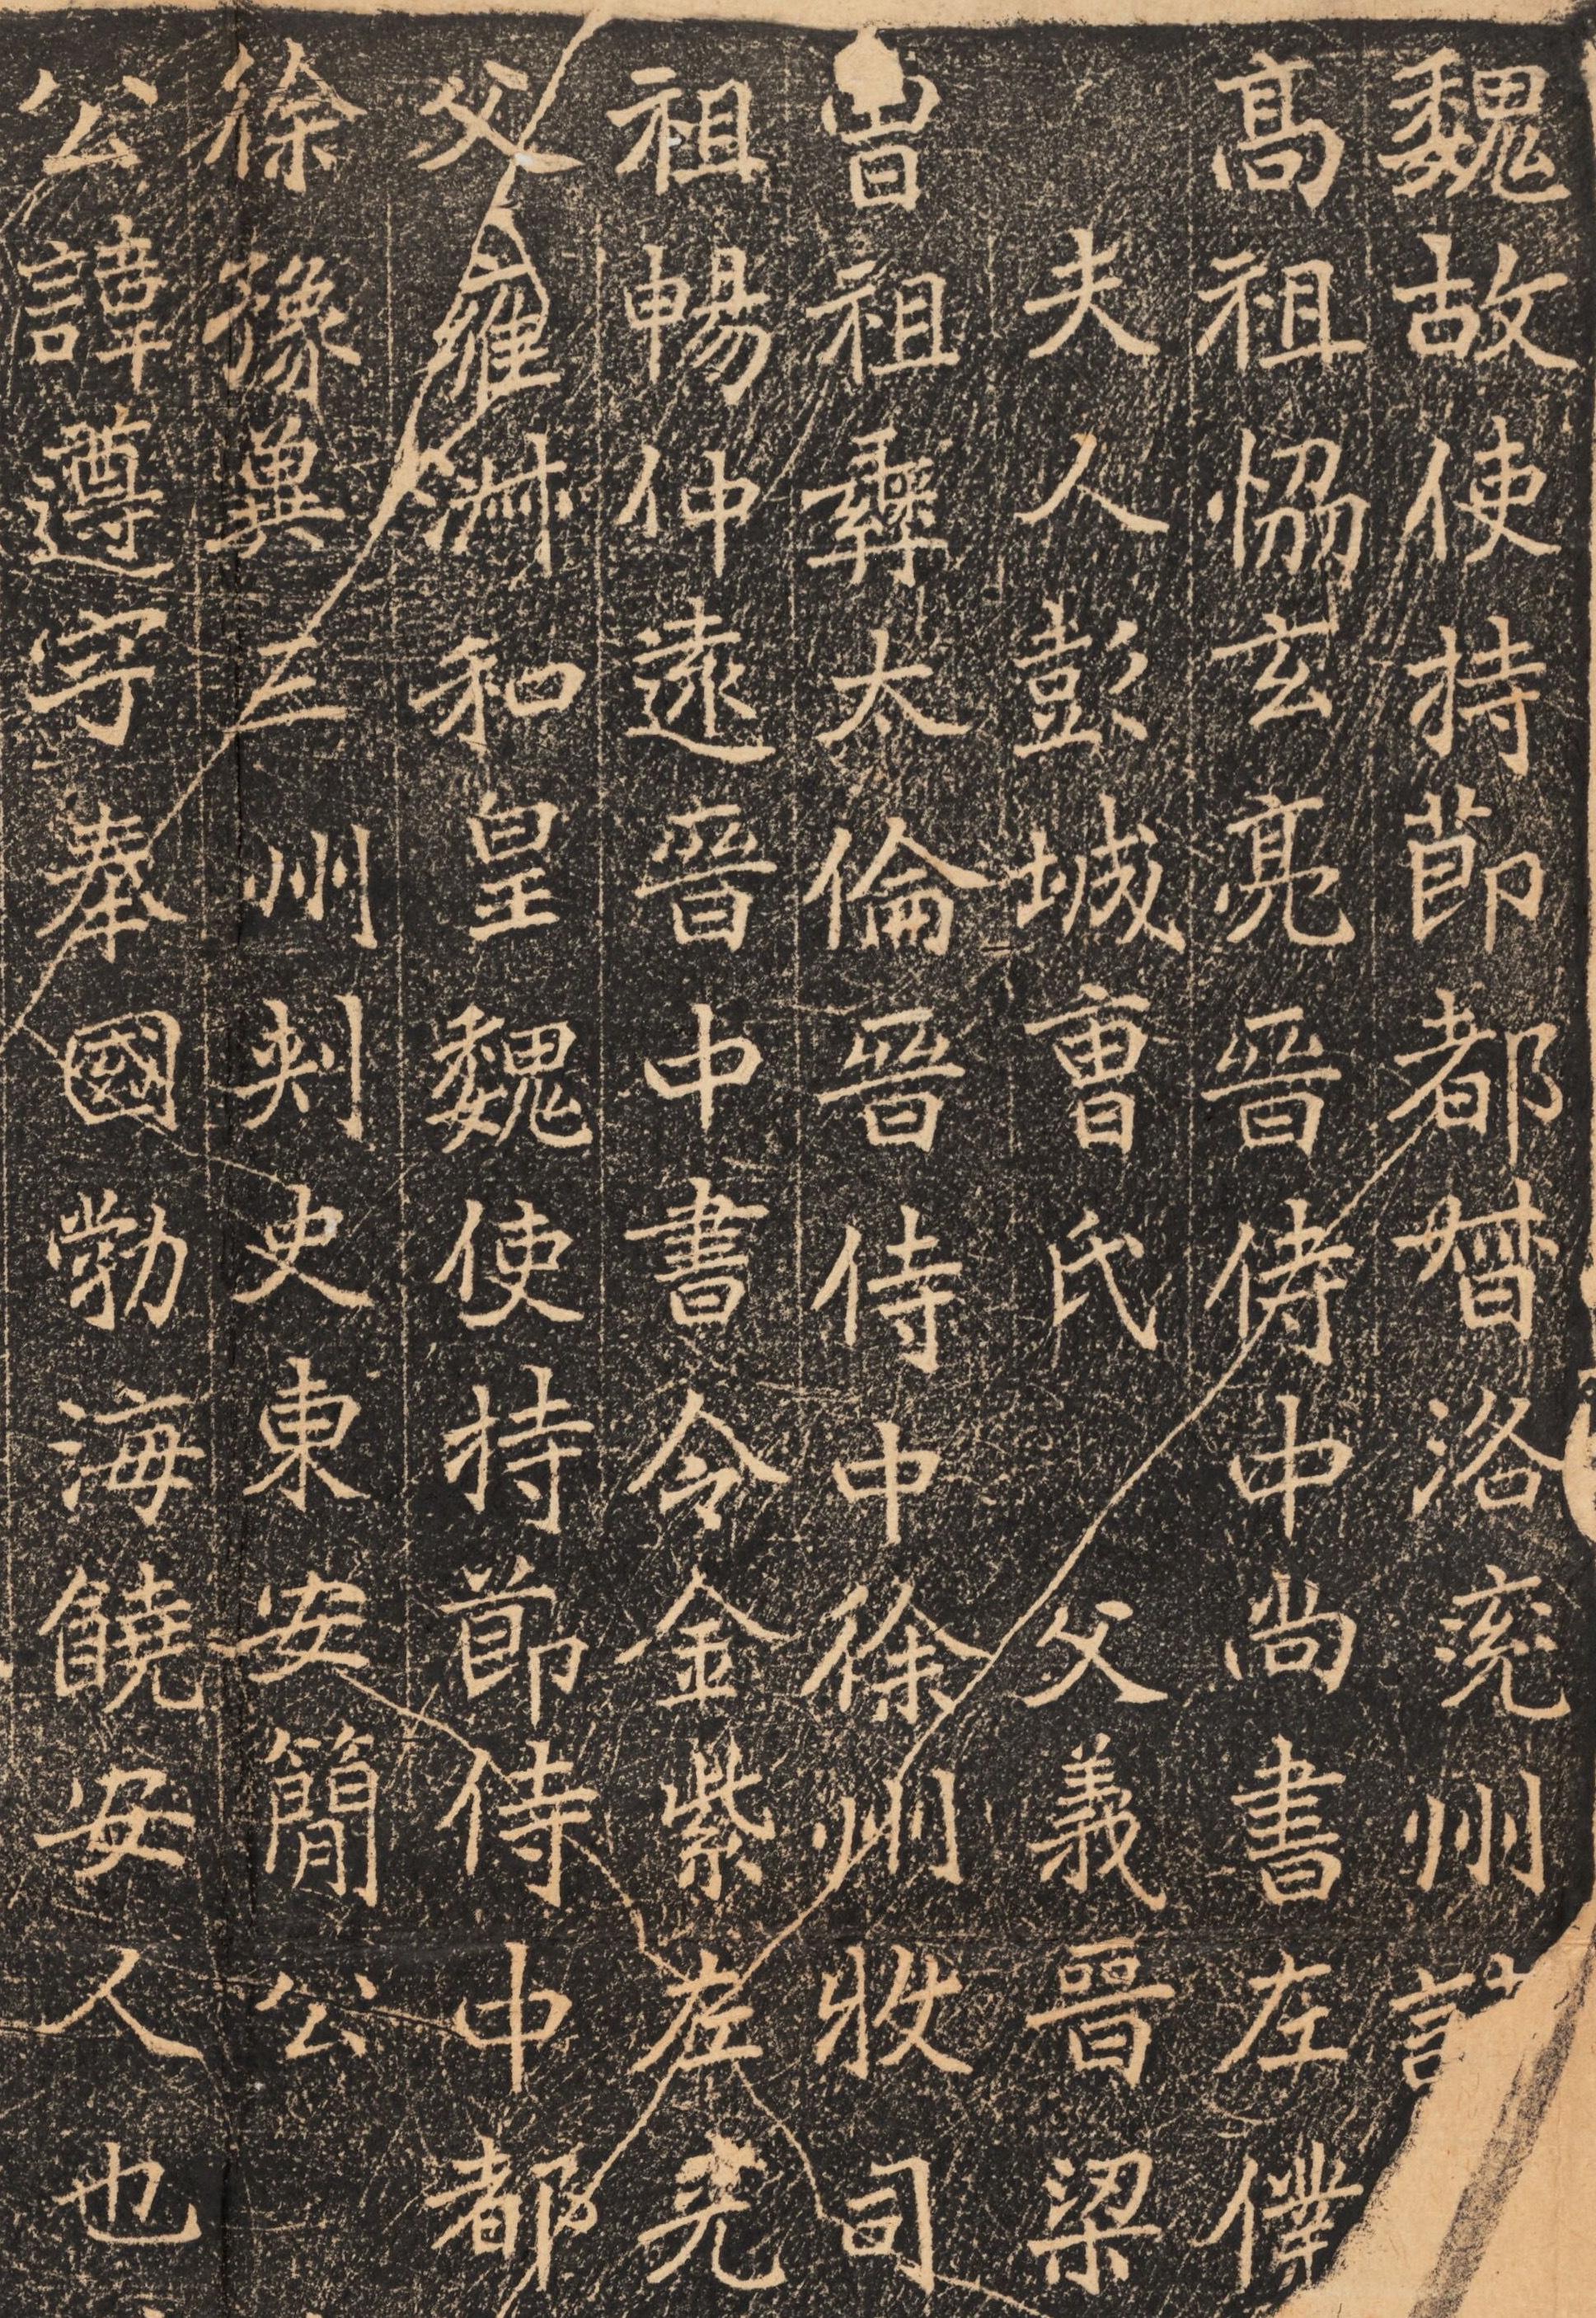 魏故使持節都督洛兗州諸
高祖協玄亮晉侍中尚書左僕
夫人彭城曹氏父義晉梁
曾祖彝太倫晉侍中徐州牧司
祖暢仲遠晉中書令金紫左光
父雍淑和皇魏使持節侍中都
徐豫冀三州刺史東安簡公
公諱遵字奉國勃海饒安人也